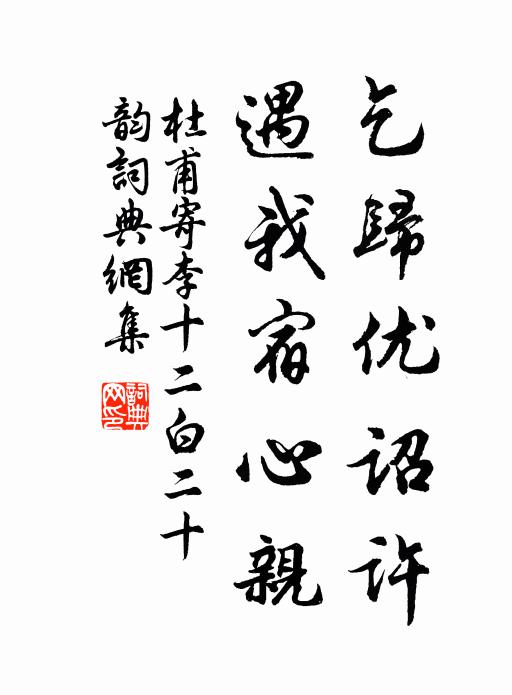 乞歸优詔許
遇我宿心親
杜甫寄李十二白二十
韵詞典網集
詞典
网印